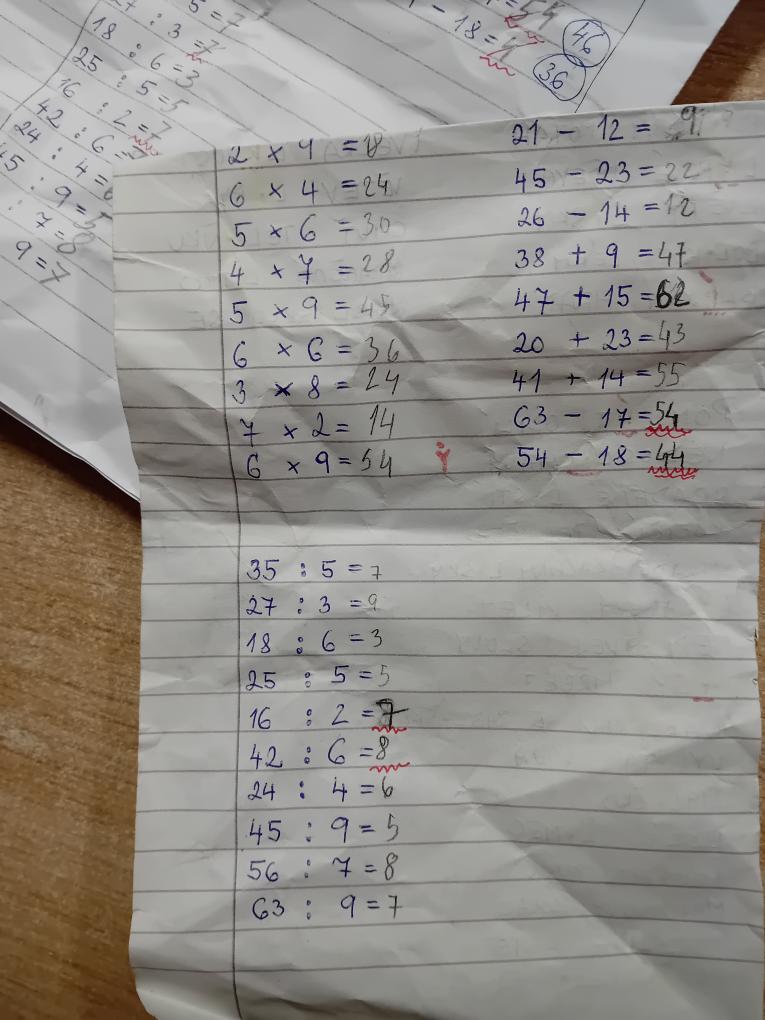 5 = 7
27 : 3 = 7
18 : 6 = 3
25 : 5 = 5
16 : 2 = 7
42 : 6 = 7
24 : 4 = 6
45 : 9 = 5
: 7 = 8
9 = 7
= 54
- 18 =
46
36
2 × 9 = 18
6 × 4 = 24
5 × 6 = 30
4 × 7 = 28
5 × 9 = 45
6 × 6 = 36
3 × 8 = 24
7 × 2 = 14
6 × 9 = 54
21 - 12 = 9
45 - 23 = 22
26 - 14 = 12
38 + 9 = 47
47 + 15 = 62
20 + 23 = 43
41 + 14 = 55
63 - 17 = 54
54 - 18 = 44
35 : 5 = 7
27 : 3 = 9
18 : 6 = 3
25 : 5 = 5
16 : 2 = 7
42 : 6 = 8
24 : 4 = 6
45 : 9 = 5
56 : 7 = 8
63 : 9 = 7